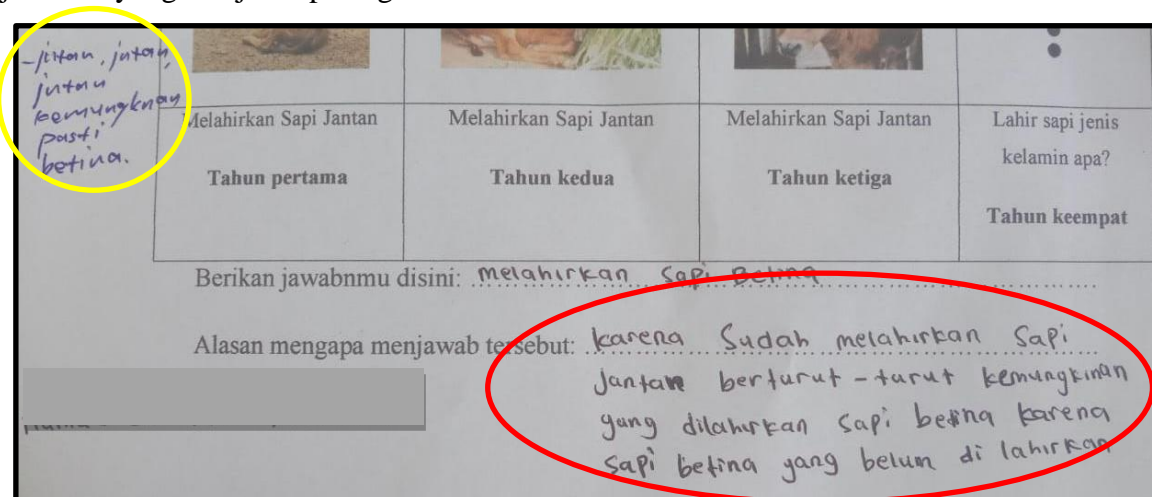 -jntan, jntan,
jntan
kemungknan
pasti
betina.
Melahirkan Sapi Jantan
Tahun pertama
Melahirkan Sapi Jantan
Tahun kedua
Melahirkan Sapi Jantan
Tahun ketiga
Lahir sapi jenis
kelamin apa?
Tahun keempat
Berikan jawabnmu disini: melahirkan Sapi Betina
Alasan mengapa menjawab tersebut: karena Sudah melahirkan Sapi
Jantan berturut-turut kemungkinan
yang dilahirkan sapi betina karena
sapi betina yang belum di lahirkan